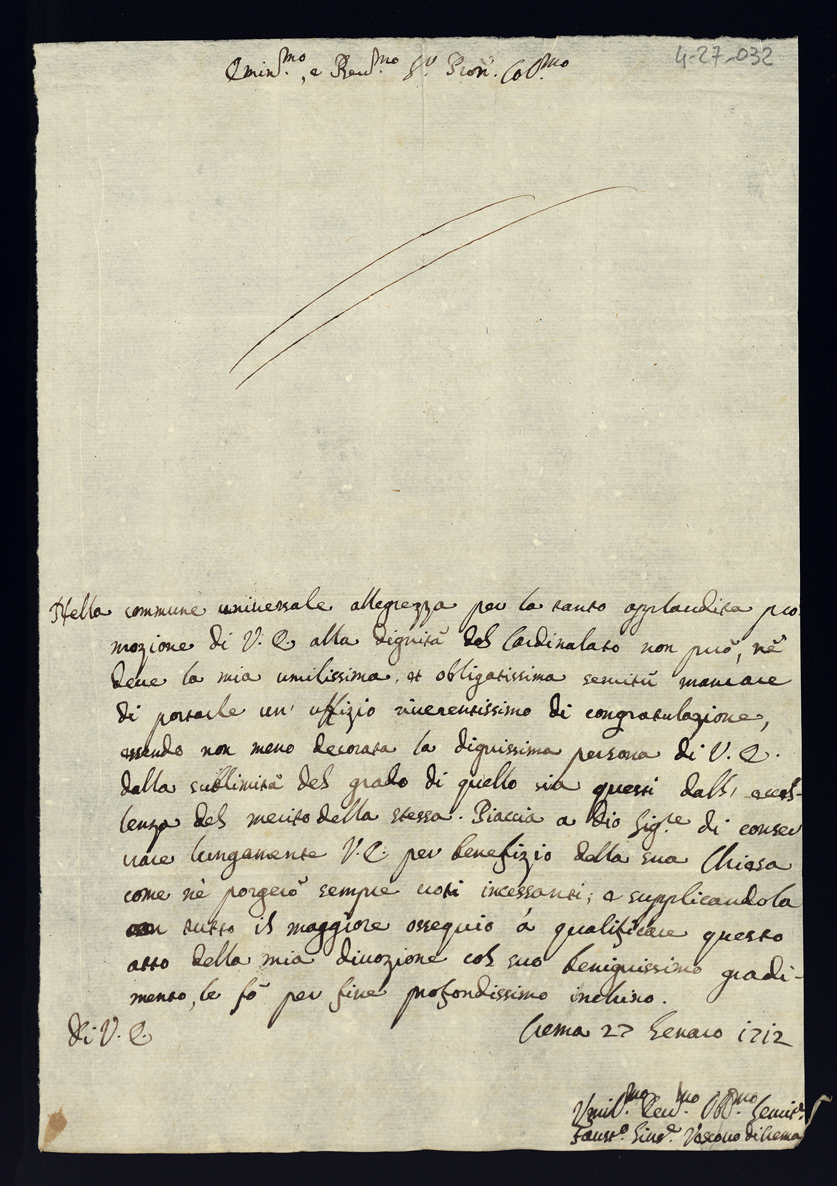 4-27-032
Emin.mo, e Reu.mo S.r Pron. Col.mo
Nella commune uniuersale allegrezza per la tanto applaudita pro
mozione di V. E. alla dignità del Cardinalato non può, nè
deue la mia umilissima, et obligatissima seruitù mancare
di portarle un' uffizio riuerentissimo di congratulazione,
essendo non meno decorata la dignissima persona di V. E.
dalla sublimità del grado di quello sia questi dall' eccel-
lenza del merito della stessa. Piaccia a Dio Sig.re di conser
uare lungamente V. E. per benefizio della sua Chiesa
come nè porgerò sempre uoti incessanti; e supplicandola
con tutto il maggiore ossequio à qualificare questo
atto della mia diuozione col suo benignissimo gradi-
mento, le fò per fine profondissimo inchino.
Di V. E.
Crema 27 Genaro 1712
Vmil.mo Deu.mo Obl.mo Seruit.r
Faust.o Vescouo di Crema